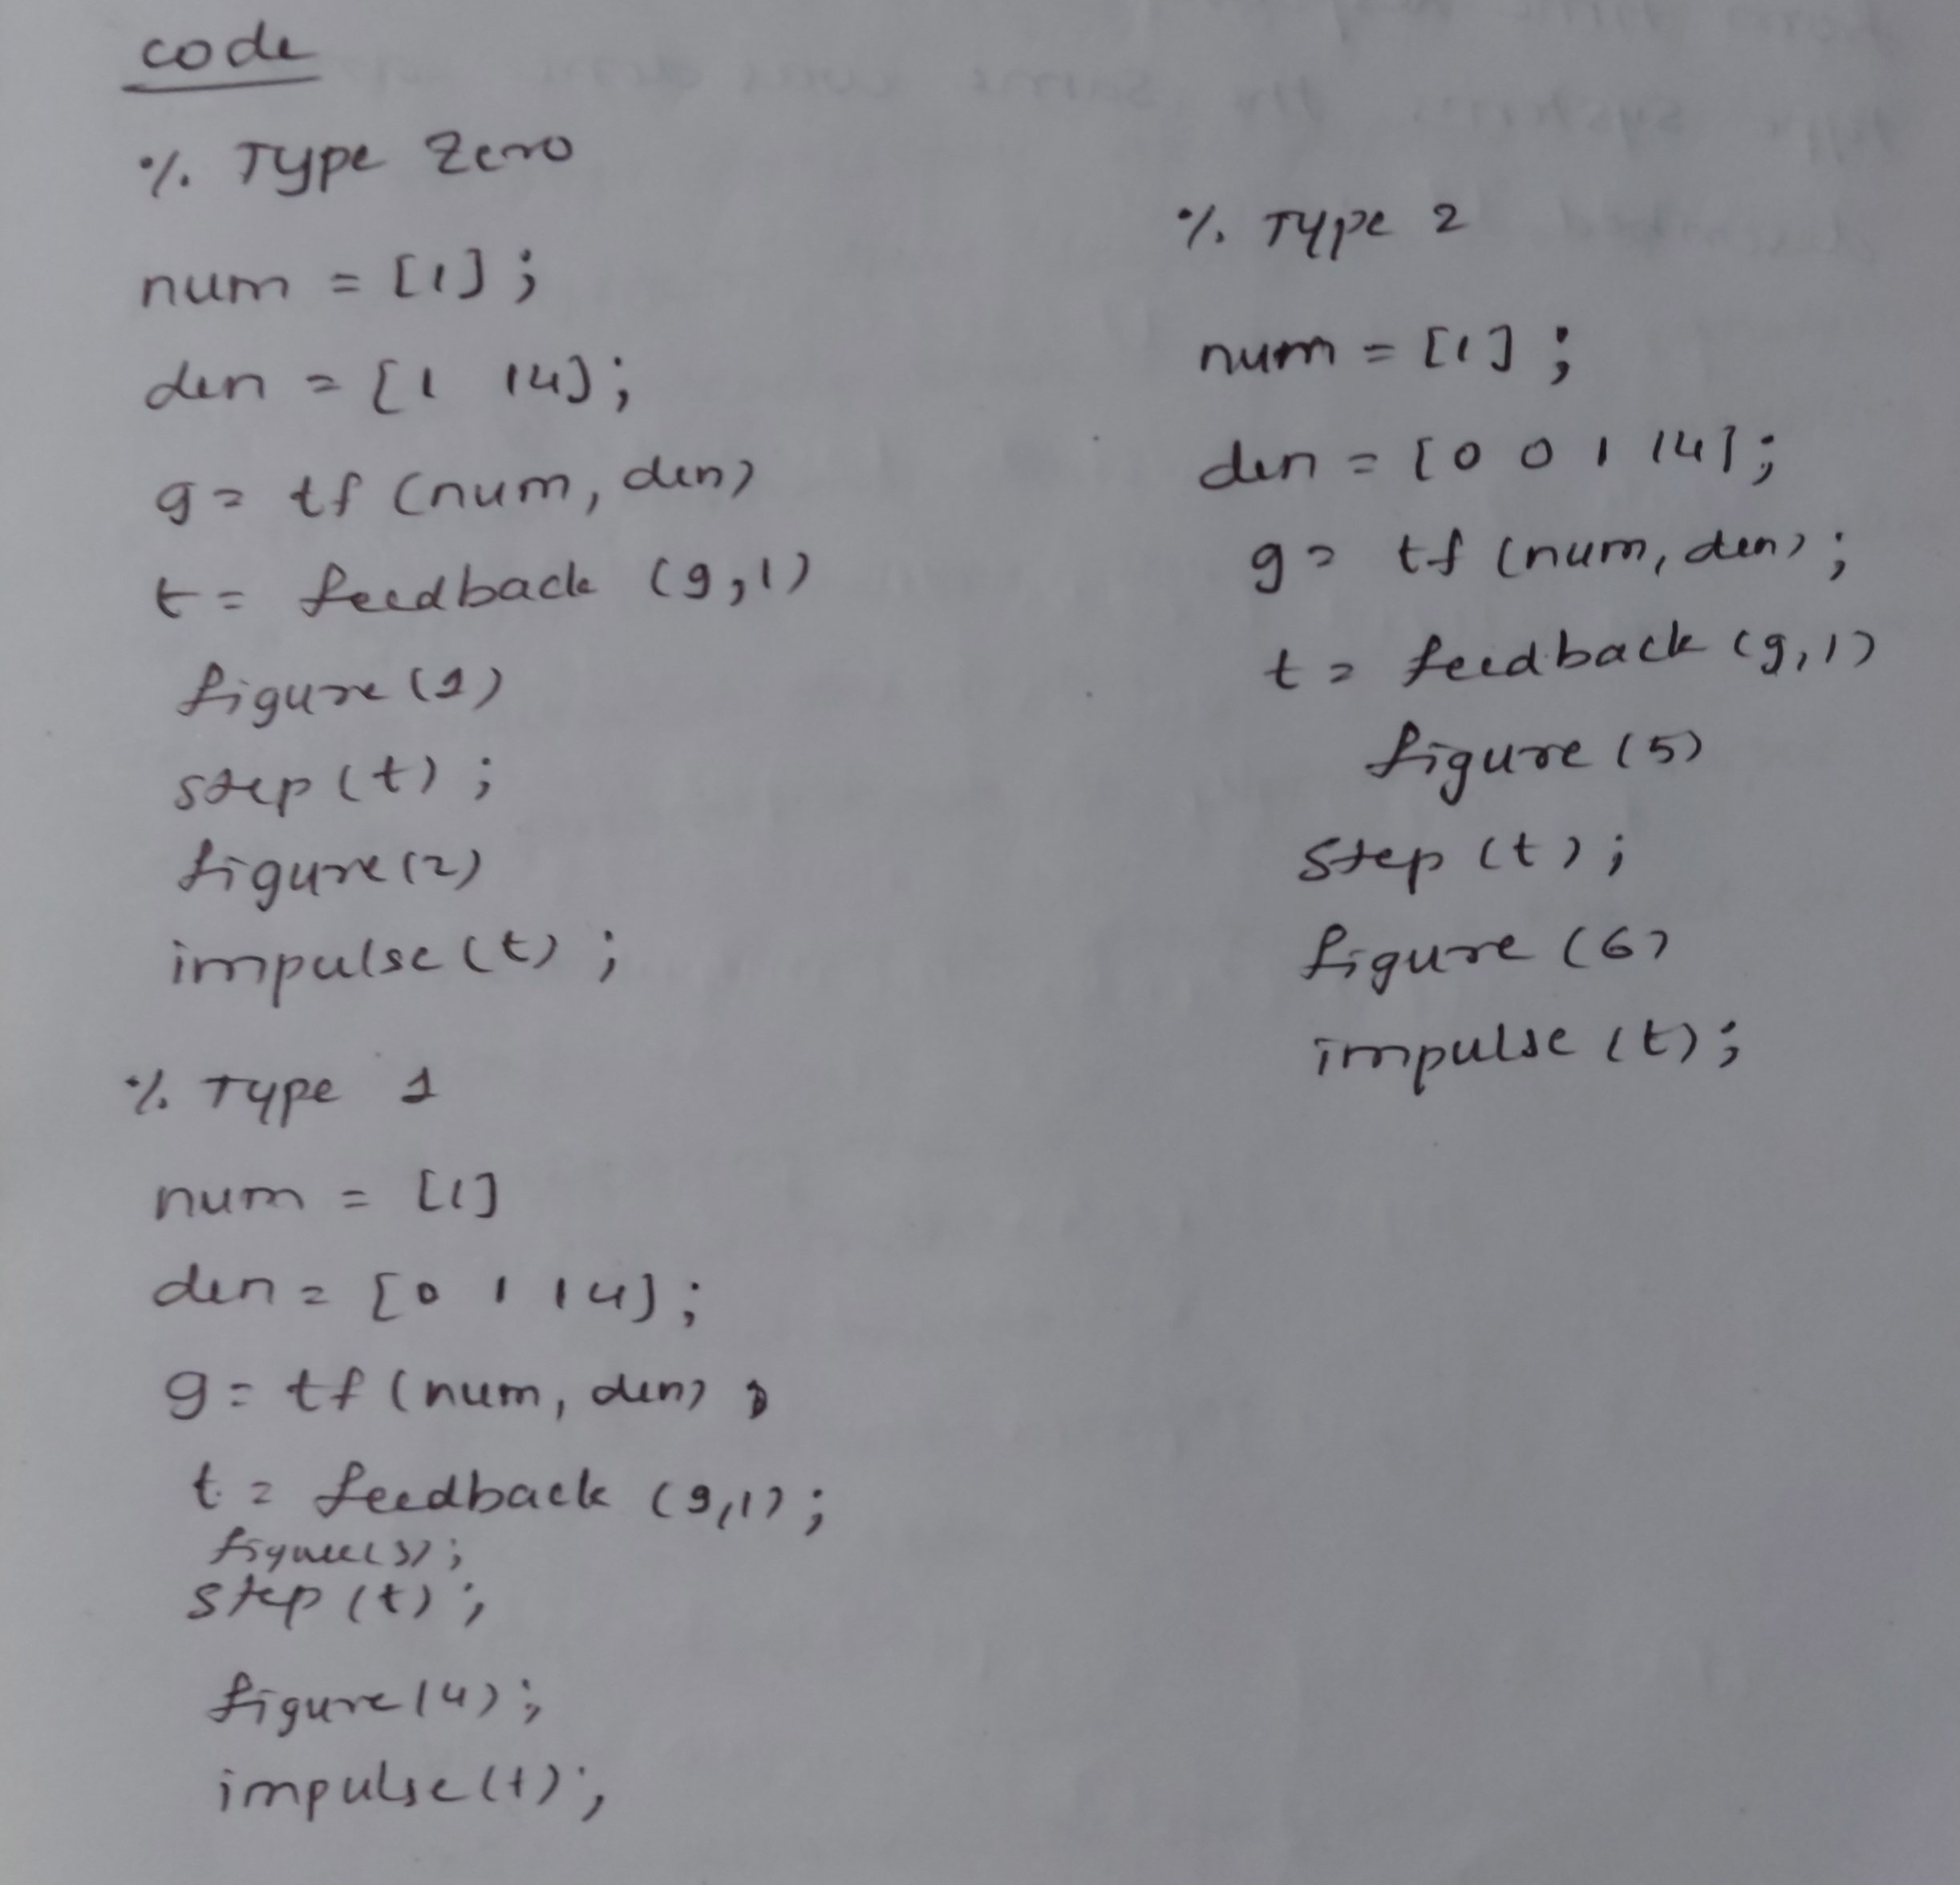 code
% Type Zero
num = [1];
den = [1 14];
g = tf (num, den)
t = feedback (g,1)
figure (1)
step (t);
figure (2)
impulse (t);
% Type 1
num = [1]
den = [0 1 14];
g = tf (num, den);
t = feedback (g,1);
figure (3);
step (t);
figure (4);
impulse (t);
% Type 2
num = [1];
den = [0 0 1 14];
g = tf (num, den);
t = feedback (g,1)
figure (5)
step (t);
figure (6)
impulse (t);